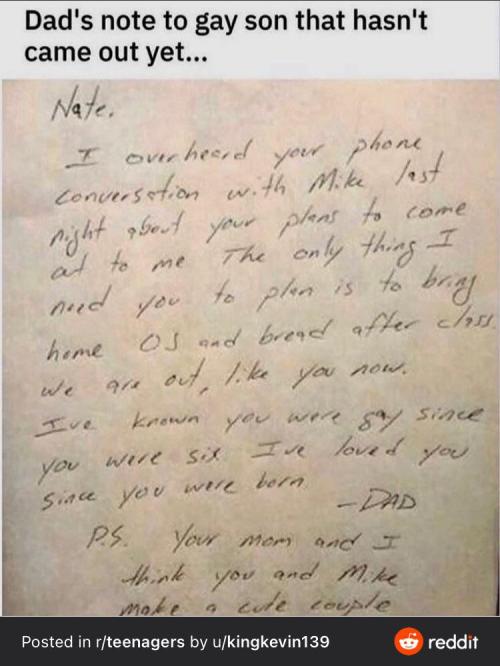 Dad's note to gay son that hasn't
came out yet...
Nate,
I overheard your phone
conversation with Mike last
night about your plans to come
out to me The only thing I
need you to plan is to bring
home OJ and bread after class
we are out, like you now.
Ive known you were gay since
you were six Ive loved you
since you were born
-DAD
P.S. Your mom and I
think you and Mike
make a cute couple
Posted in r/teenagers by u/kingkevin139
reddit